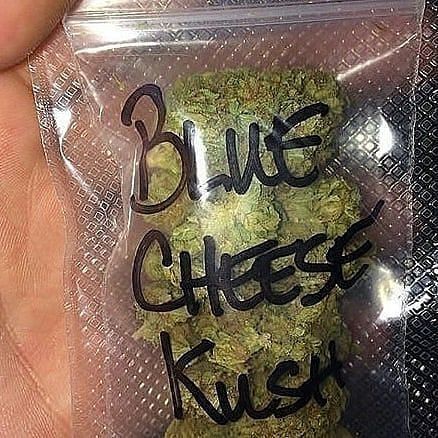 BLUE
CHEESE
KUSH